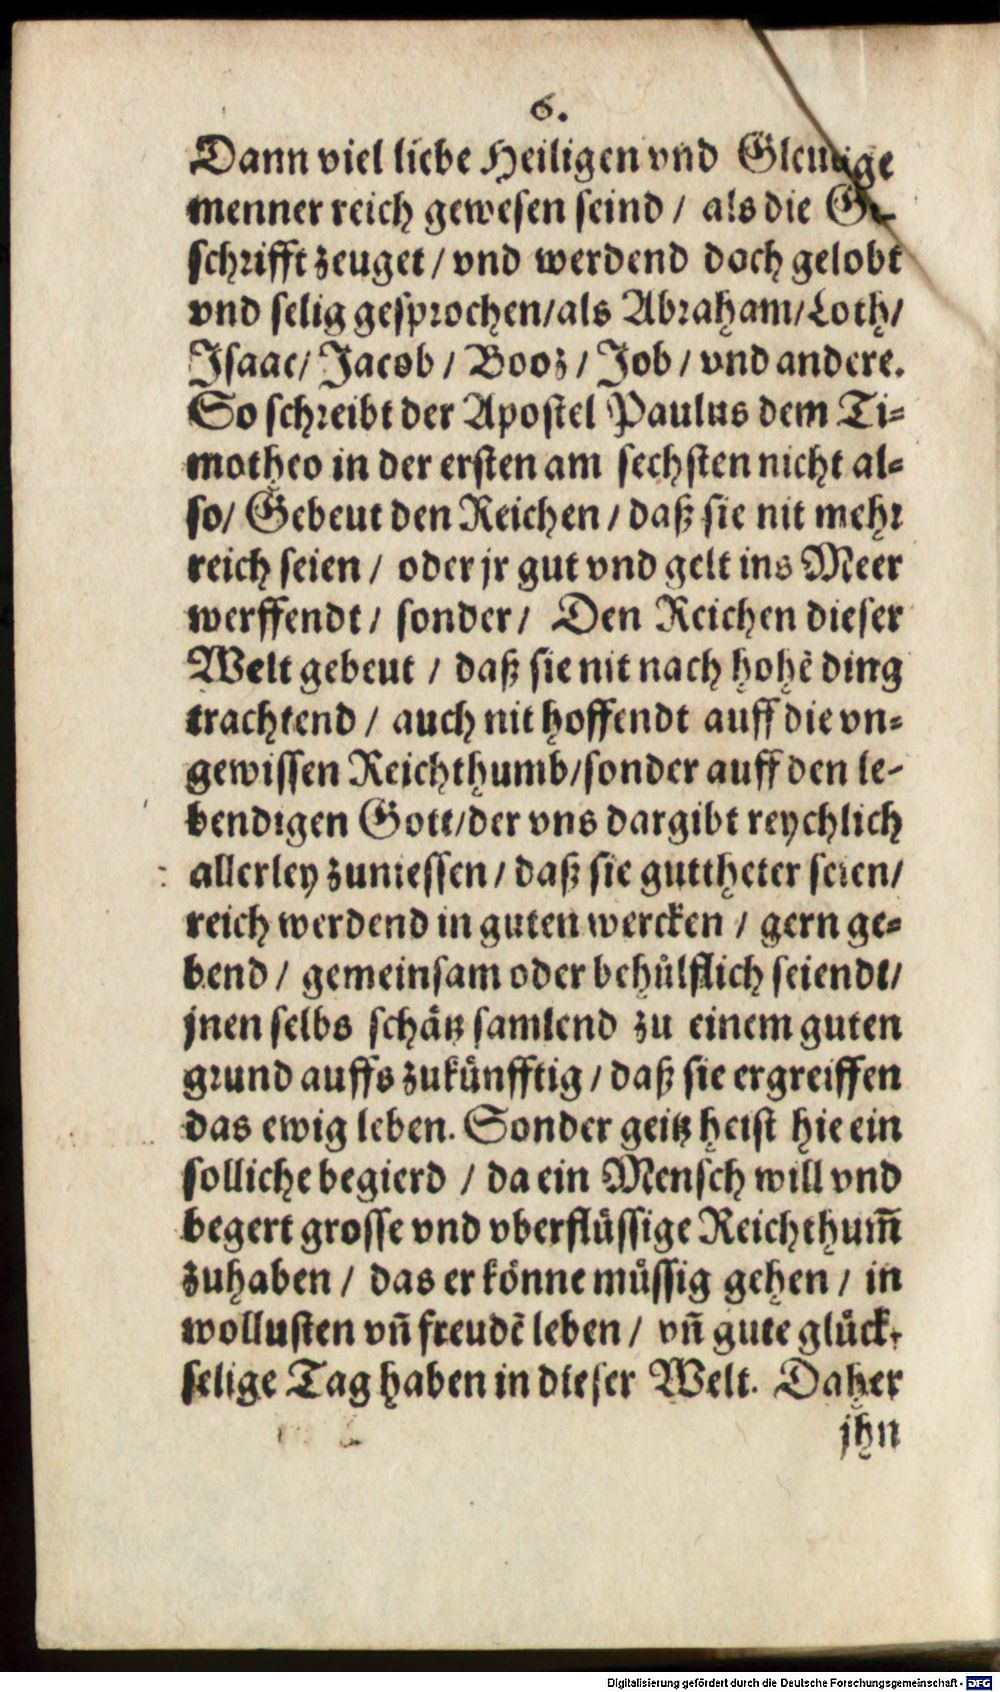 6.
Dann viel liebe Heiligen vnd Gleubige
menner reich gewesen seind / als die Ge-
schrifft zeuget / vnd werdend doch gelobt
vnd selig gesprochen/als Abraham/Loth/
Isaac/ Jacob / Booz / Job / vnd andere.
So schreibt der Apostel Paulus dem Ti=
motheo in der ersten am sechsten nicht al=
so/ Gebeut den Reichen / daß sie nit mehr
reich seien / oder jr gut vnd gelt ins Meer
werffendt / sonder / Den Reichen dieser
Welt gebeut / daß sie nit nach hohẽ ding
trachtend / auch nit hoffendt auff die vn=
gewissen Reichthumb/sonder auff den le-
bendigen Gott/der vns dargibt reychlich
allerley zuniessen / daß sie guttheter seien/
reich werdend in guten wercken / gern ge=
bend / gemeinsam oder behülfflich seiendt/
jnen selbs schätz samlend zu einem guten
grund auffs zukünfftig / daß sie ergreiffen
das ewig leben. Sonder geitz heist hie ein
solliche begierd / da ein Mensch will vnd
begert grosse vnd vberflüssige Reichthum̃
zuhaben / das er könne müssig gehen / in
wollusten vñ freudẽ leben / vñ gute glück-
selige Tag haben in dieser Welt. Daher
jhn
Digitalisierung gefördert durch die Deutsche Forschungsgemeinschaft - DFG